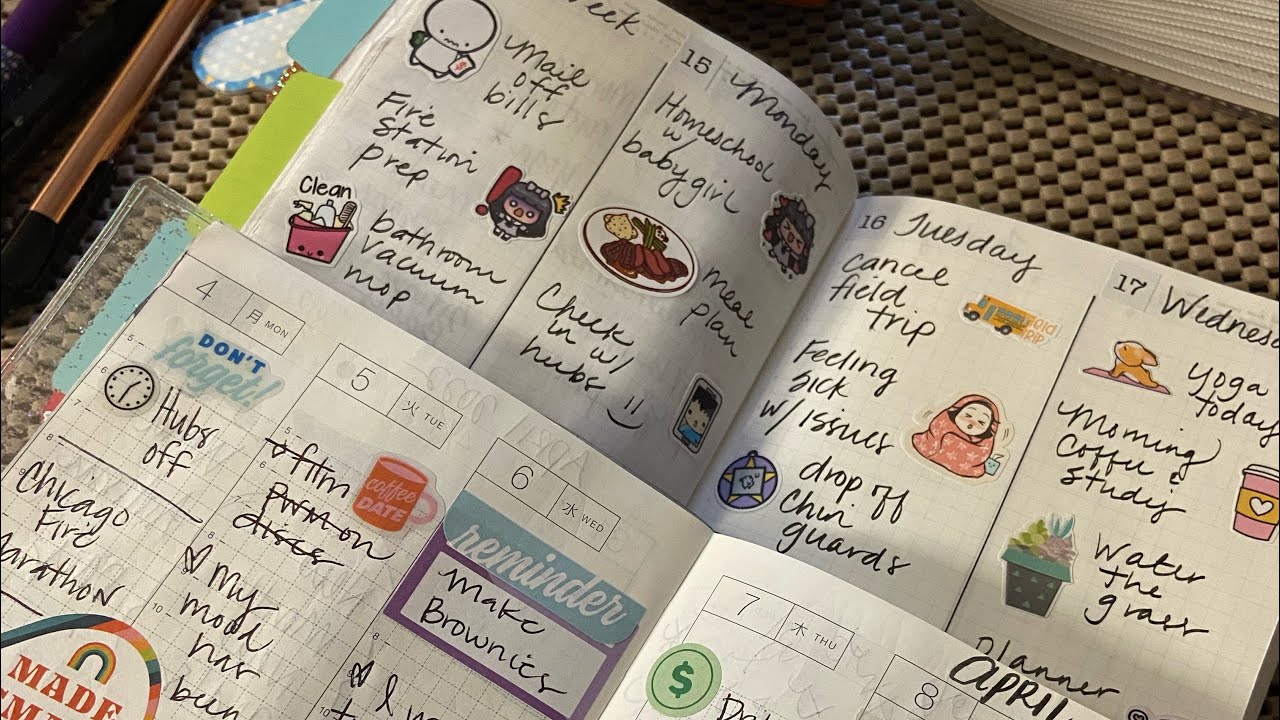 Week
Mail
off
bills
Fire
station
prep
Clean
bathroom
vacuum
mop
15 Monday
Homeschool
w/
babygirl
meal
plan
Check
in w/
hubs
16 Tuesday
cancel
field
trip
FIELD
TRIP
Feeling
sick
w/ issues
drop off
Chin
guards
17 Wednes
Yoga
today
Morning
Coffee &
Study
Water
the
grass
Planner
4 月 MON
DON'T
forget!
Hubs
off
Chicago
Fire
Marathon
MADE
5 火 TUE
coffee
DATE
on
discs
My
mood
has
been
6 水 WED
reminder
Make
Brownies
I
7 木 THU
$
8
APRIL